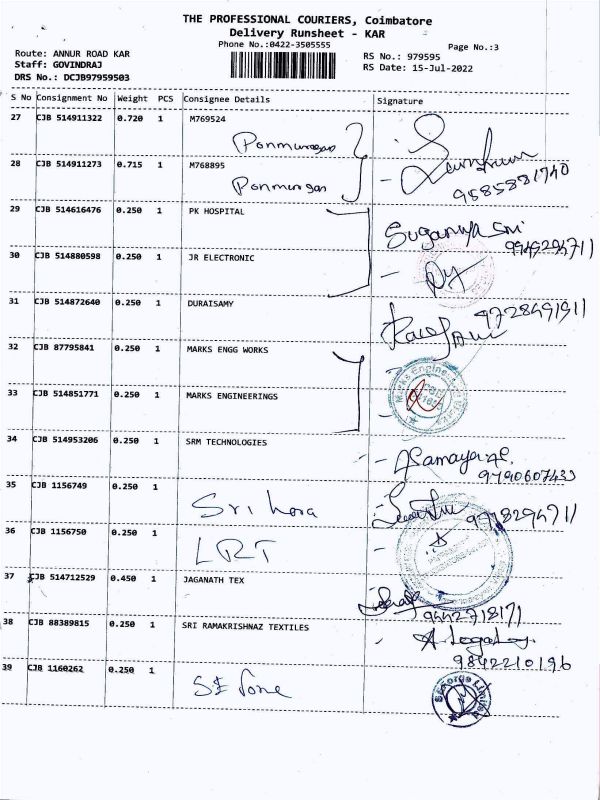 THE PROFESSIONAL COURIERS, Coimbatore
Delivery Runsheet - KAR
Phone No.:0422-3505555
Page No.:3
Route: ANNUR ROAD KAR
Staff: GOVINDRAJ
DRS No.: DCJB97959503
RS No.: 979595
RS Date: 15-Jul-2022
S No Consignment No Weight PCS Consignee Details Signature
27 CJB 514911322 0.720 1 M769524
Ponmurugan
28 CJB 514911273 0.715 1 M768895
Ponmurugan
9585881740
29 CJB 514616476 0.250 1 PK HOSPITAL
Suganya Sri
30 CJB 514880598 0.250 1 JR ELECTRONIC
31 CJB 514872640 0.250 1 DURAISAMY
9728491911
32 CJB 87795841 0.250 1 MARKS ENGG WORKS
33 CJB 514851771 0.250 1 MARKS ENGINEERINGS
Marks Engine
34 CJB 514953206 0.250 1 SRM TECHNOLOGIES
9790607433
35 CJB 1156749 0.250 1
Sri hora
36 CJB 1156750 0.250 1
LRT
37 CJB 514712529 0.450 1 JAGANATH TEX
9442718171
38 CJB 88389815 0.250 1 SRI RAMAKRISHNAZ TEXTILES
9842210196
39 CJB 1160262 0.250 1
Limited